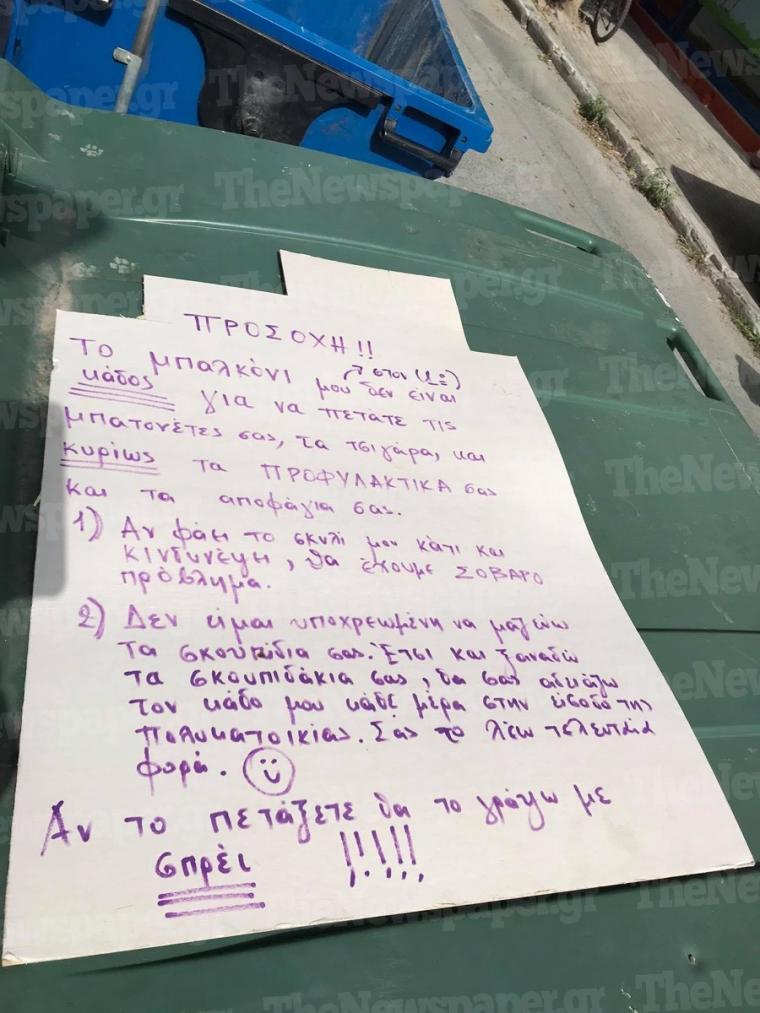 ΠΡΟΣΟΧΗ!!
Το μπαλκόνι μου δεν είναι
στον (1ο)
κάδος για να πετάτε τις
μπατονέτες σας, τα τσιγάρα, και
κυρίως τα ΠΡΟΦΥΛΑΚΤΙΚΑ σας
και τα αποφάγια σας.
1) Αν φάει το σκυλί μου κάτι και
κινδυνέψει, θα έχουμε ΣΟΒΑΡΟ
πρόβλημα.
2) Δεν είμαι υποχρεωμένη να μαζεύω
τα σκουπίδια σας. Έτσι και ξαναδώ
τα σκουπιδάκια σας, θα σας αδειάζω
τον κάδο μου κάθε μέρα στην είσοδο της
πολυκατοικίας. Σας το λέω τελευταία
φορά.
Αν το πετάξετε θα το γράψω με
σπρέι !!!!!
TheNewspaper.gr